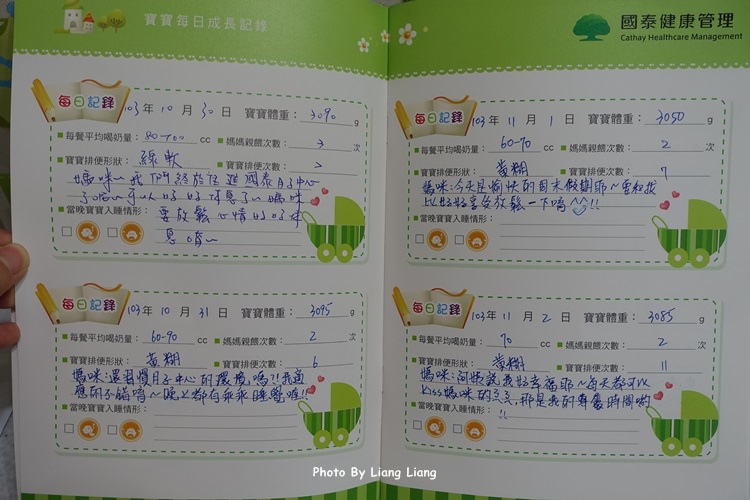 寶寶每日成長記錄
每日記錄 103年 10 月 30 日 寶寶體重: 3090 g
每餐平均喝奶量: 80-100 cc 媽媽親餵次數: 3 次
寶寶排便形狀: 綠軟 寶寶排便次數: 2
媽咪~我們終於住進國泰月子中心
了唷~可以好好休息了~媽咪
當晚寶寶入睡情形: 要放鬆心情好好休
息唷~
每日記錄 103年 10 月 31 日 寶寶體重: 3095 g
每餐平均喝奶量: 60-90 cc 媽媽親餵次數: 2 次
寶寶排便形狀: 黃糊 寶寶排便次數: 6
媽咪:還習慣月子中心的環境嗎?!我適
應的不錯唷~晚上都有乖乖睡覺唷!!
當晚寶寶入睡情形:
國泰健康管理
Cathay Healthcare Management
每日記錄 103年 11 月 1 日 寶寶體重: 3050 g
每餐平均喝奶量: 60-70 cc 媽媽親餵次數: 2 次
寶寶排便形狀: 黃糊 寶寶排便次數: 7
媽咪:今天是愉快的周末假期耶~要和我
以好好享受放鬆一下唷^^!!
當晚寶寶入睡情形:
每日記錄 103年 11 月 2 日 寶寶體重: 3085 g
每餐平均喝奶量: 70 cc 媽媽親餵次數: 2 次
寶寶排便形狀: 黃糊 寶寶排便次數: 11
媽咪:阿姨說我好幸福耶~每天都可以
kiss媽咪的ㄋㄟㄋㄟ,那是我的專屬時間喲
!!
當晚寶寶入睡情形:
Photo By Liang Liang